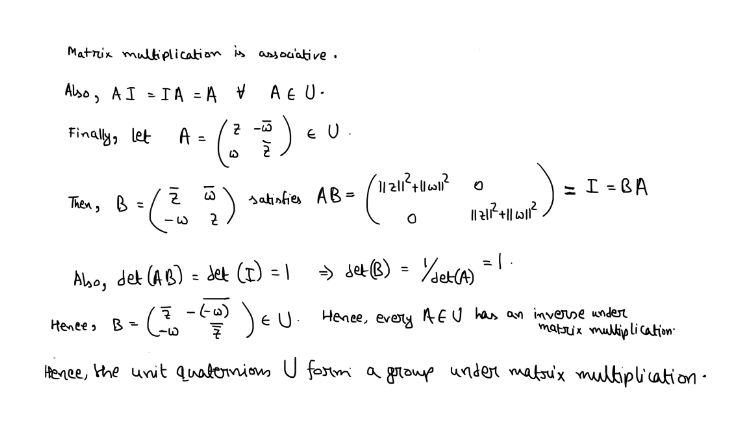 Matrix multiplication is associative.
Also, AI = IA = A ∀ A ∈ U.
Finally, let A = \begin{pmatrix} z & -\bar{ω} \\ ω & \bar{z} \end{pmatrix} ∈ U.
Then, B = \begin{pmatrix} \bar{z} & \bar{ω} \\ -ω & z \end{pmatrix} satisfies AB = \begin{pmatrix} ||z||^2+||ω||^2 & 0 \\ 0 & ||z||^2+||ω||^2 \end{pmatrix} = I = BA
Also, det(AB) = det(I) = 1 ⇒ det(B) = 1/det(A) = 1.
Hence, B = \begin{pmatrix} \bar{z} & -\overline{(-ω)} \\ -ω & \bar{\bar{z}} \end{pmatrix} ∈ U. Hence, every A ∈ U has an inverse under
matrix multiplication.
Hence, the unit quaternions U form a group under matrix multiplication.